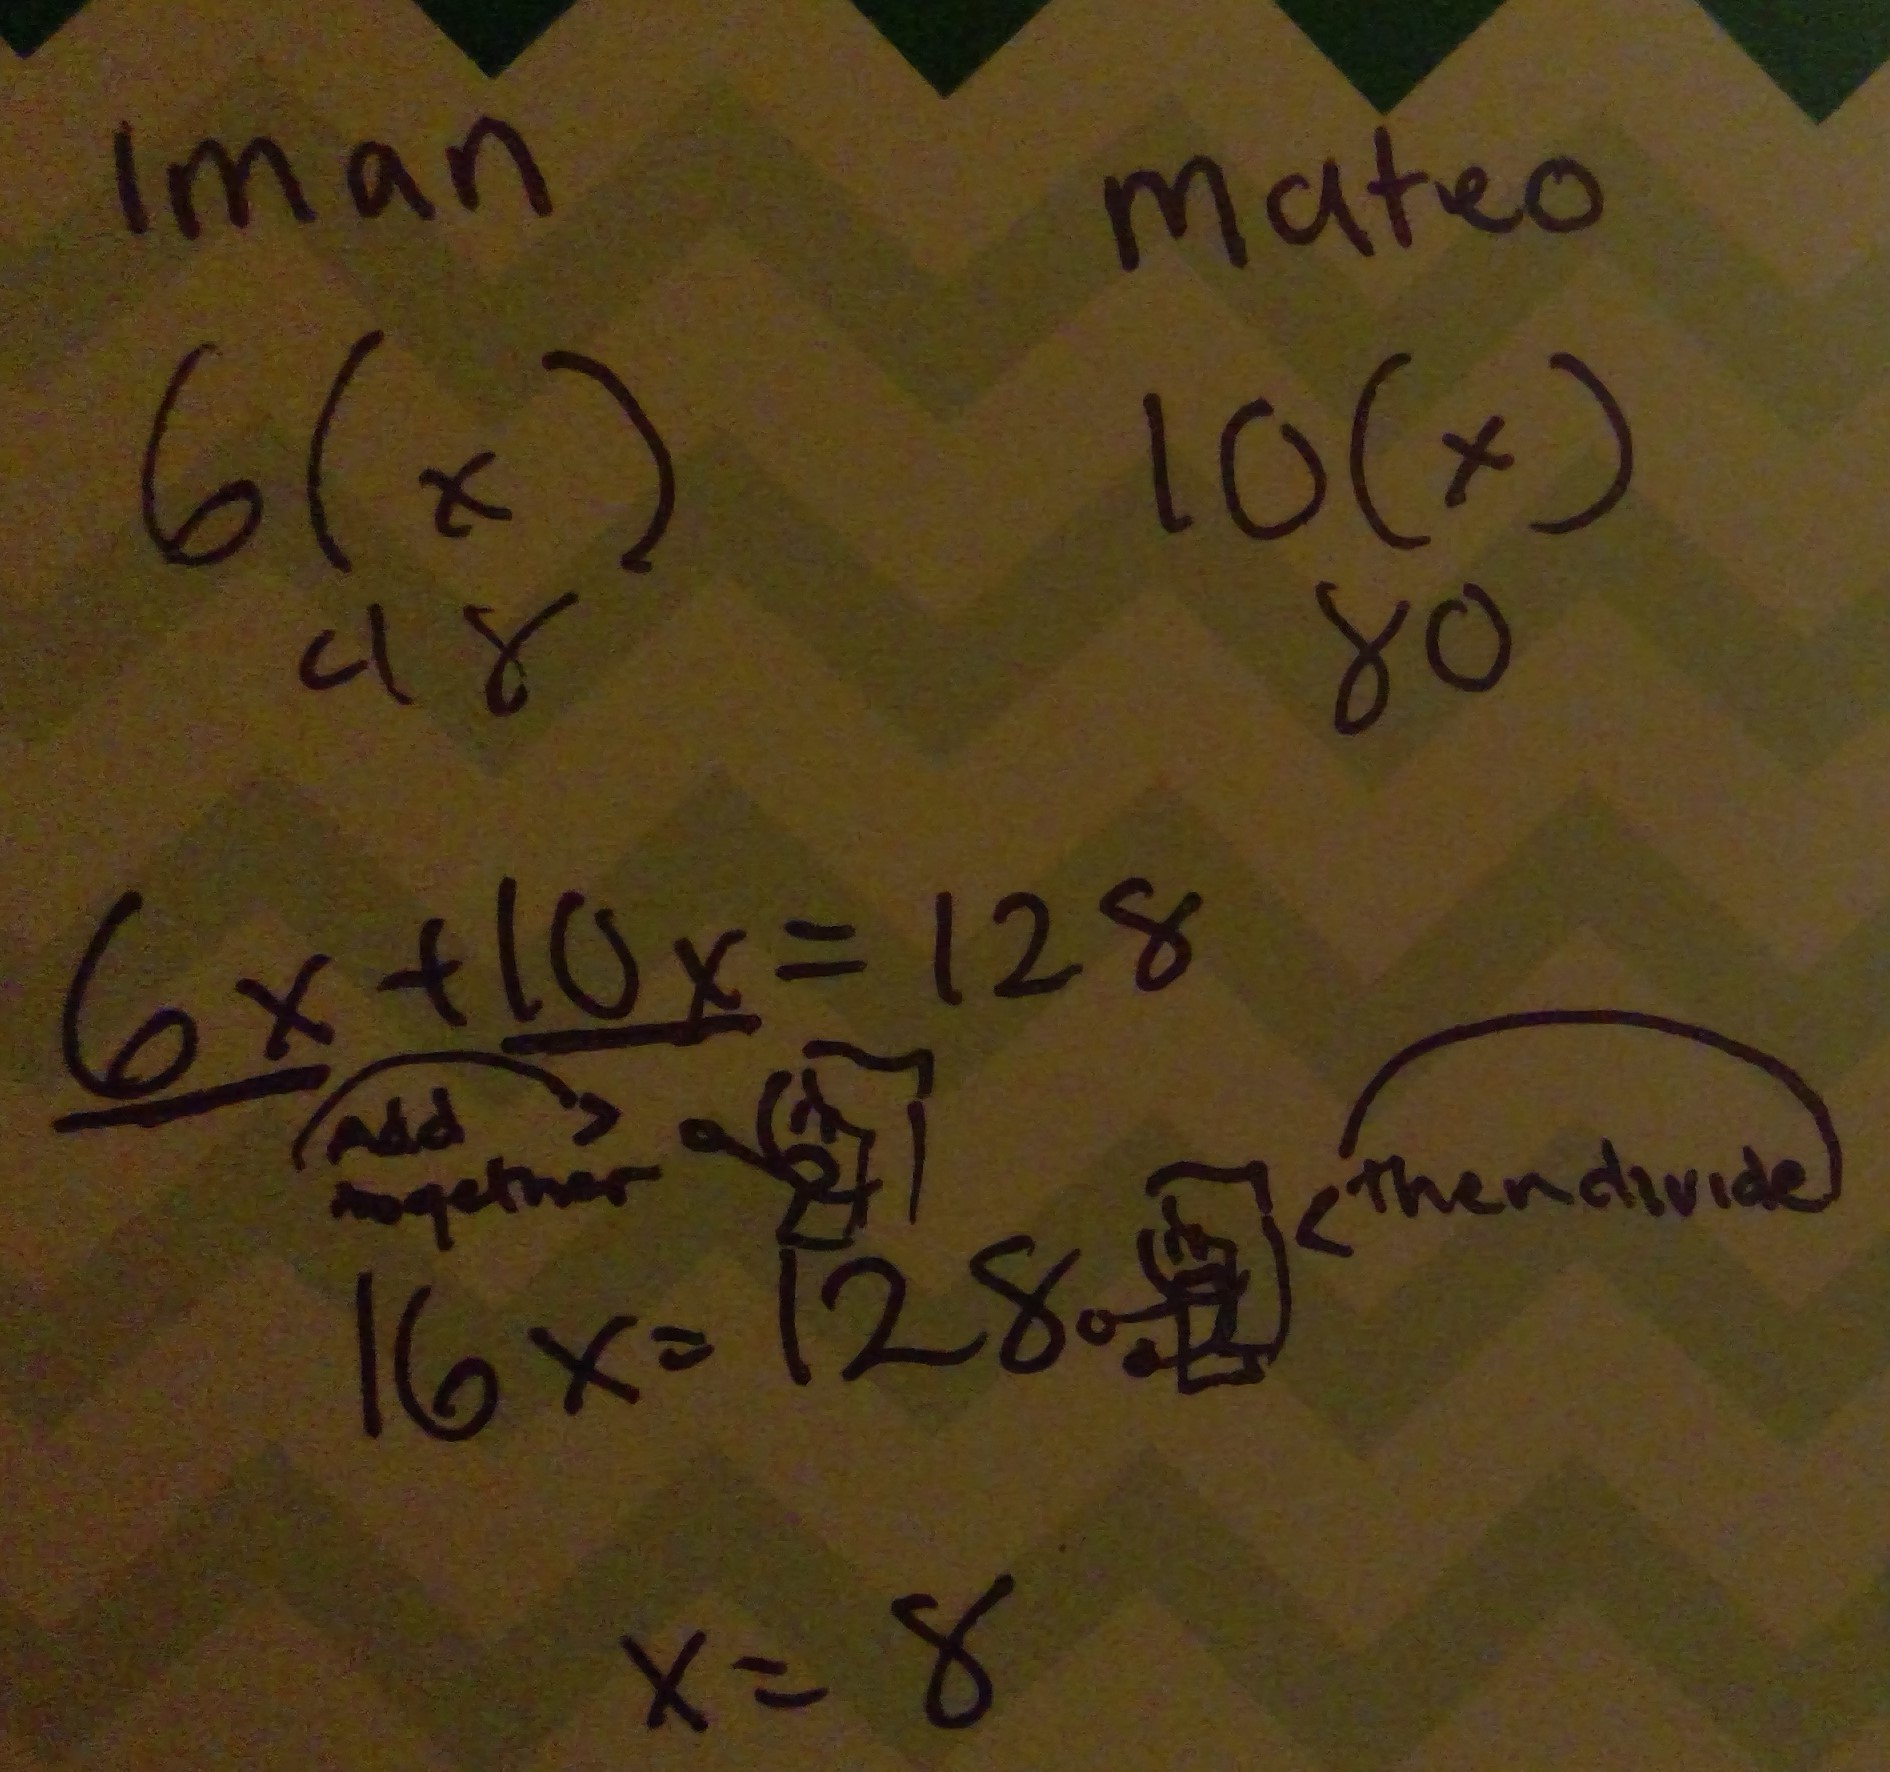 Iman
mateo
6(x)
10(x)
48
80
6x+10x=128
Add
together
then divide
16x=128
x=8